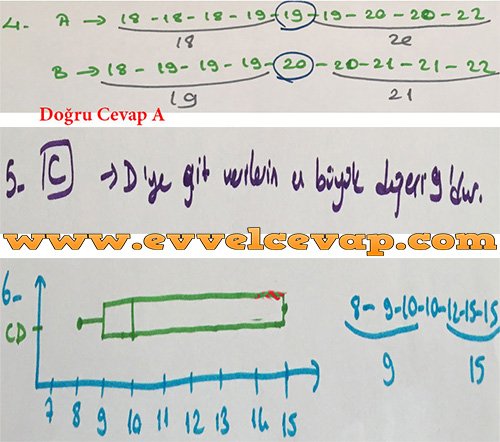 4. A → 18 - 18 - 18 - 19 - 19 - 19 - 20 - 20 - 22
18 20
B → 18 - 19 - 19 - 19 - 20 - 20 - 21 - 21 - 22
19 21
Doğru Cevap A
5- C → D'ye ait verilerin en büyük değeri 9'dur.
www.evvelcevap.com
6-
CD
8 - 9 - 10 - 10 - 12 - 15 - 15
9 15
7 8 9 10 11 12 13 14 15